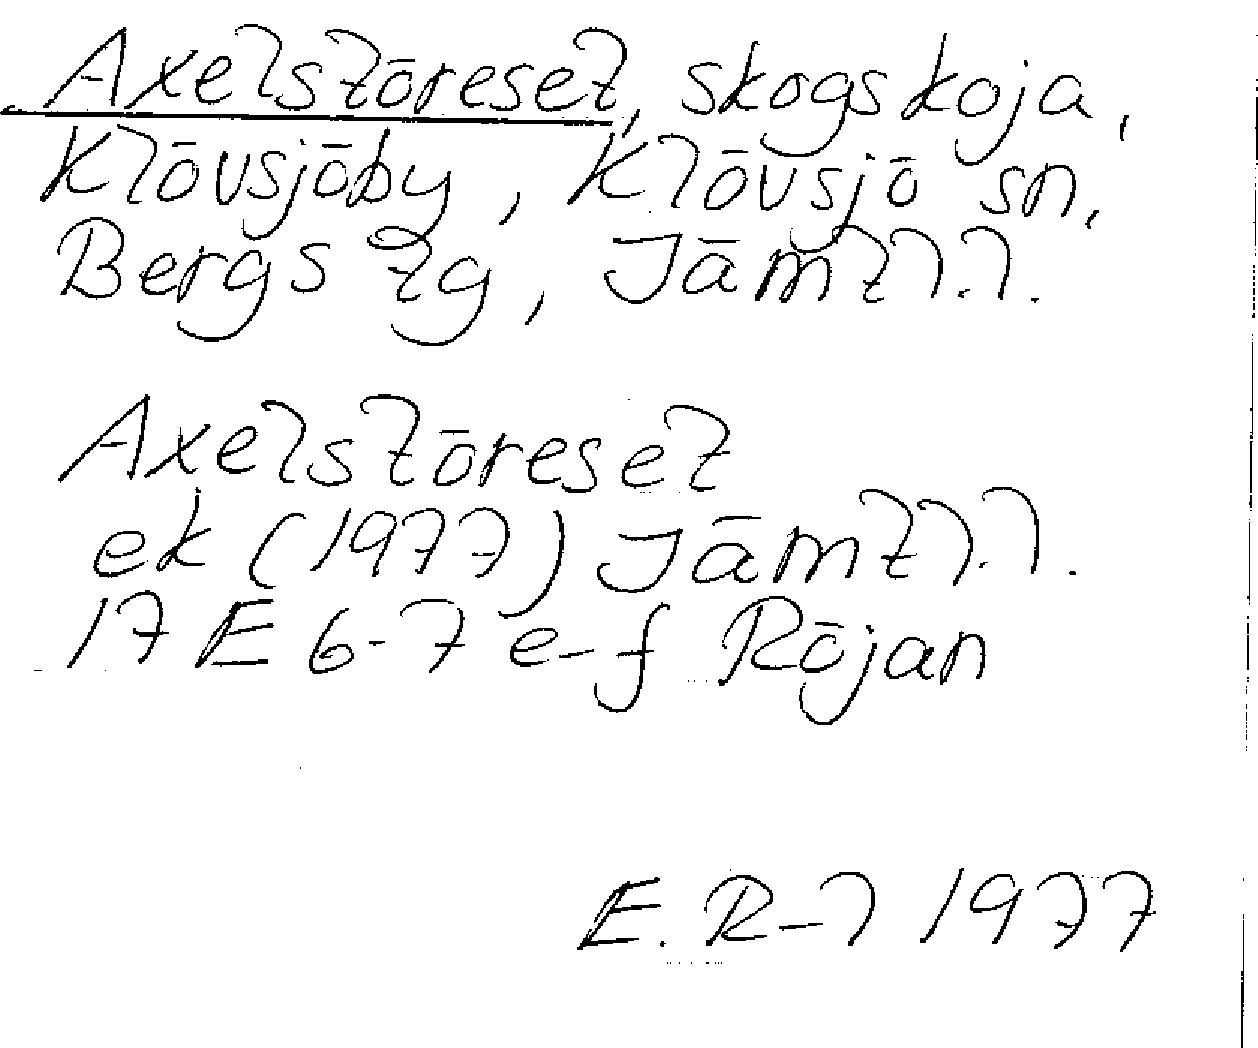 Axelstöreset, skogskoja,
Klövsjöby, Klövsjö sn,
Bergs tg, Jämtl.l.
Axelstöreset
ek (1977) Jämtl.l.
17 E 6-7 e-f Röjan
E. R-l 1977